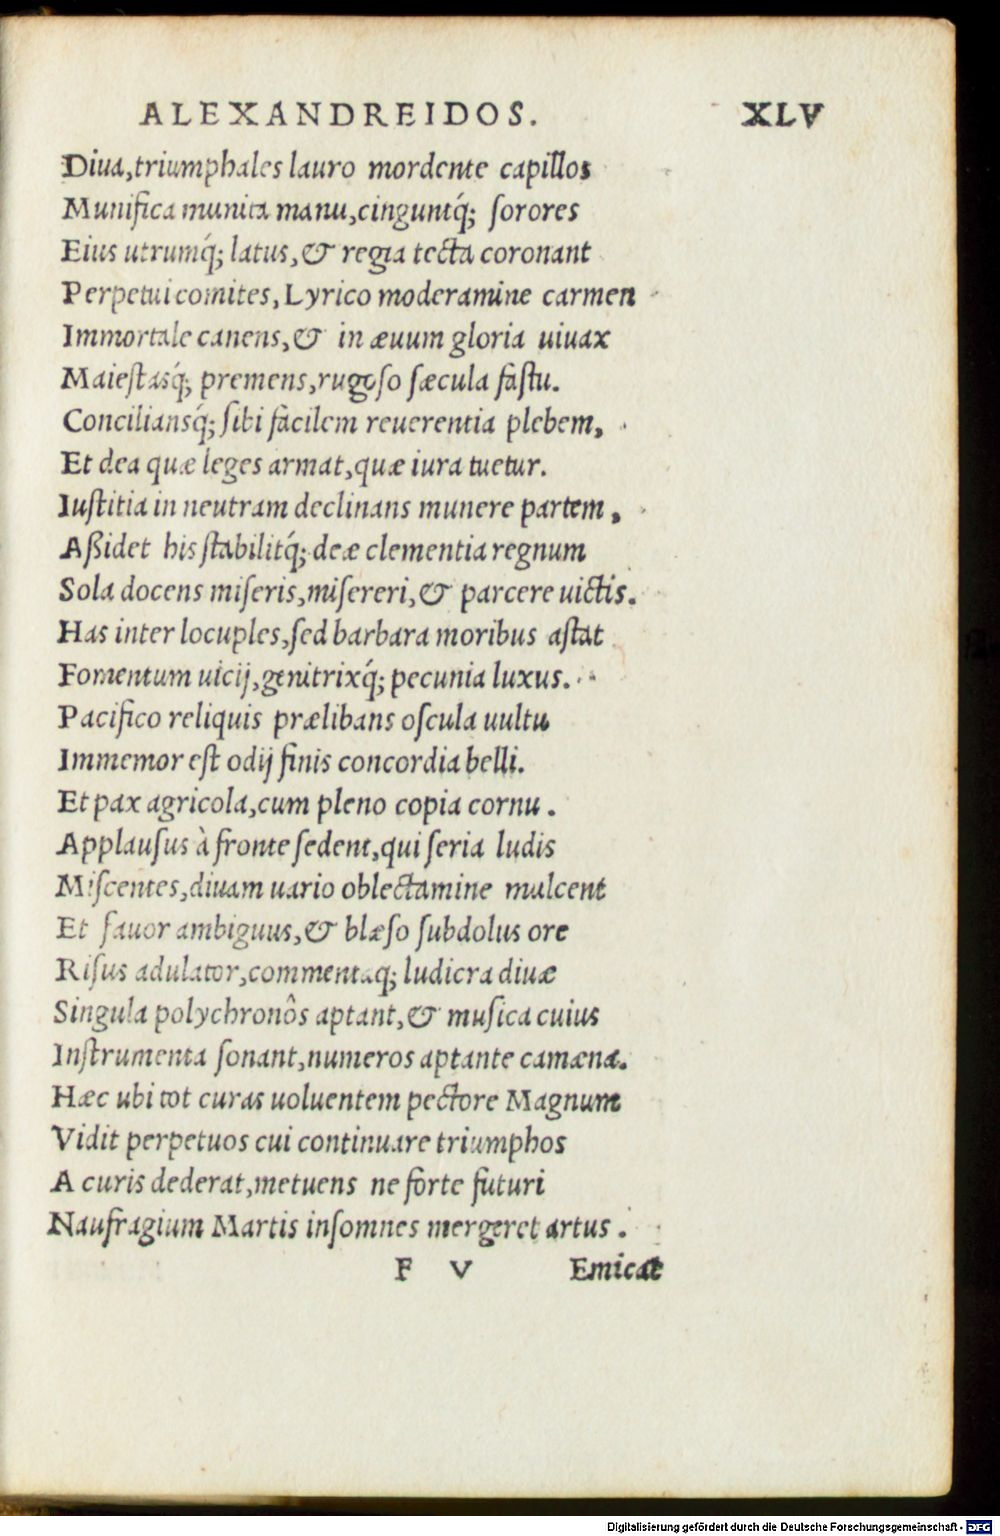 ALEXANDREIDOS. XLV
Diua,triumphales lauro mordente capillos
Munifica munita manu,cinguntq́; ſorores
Eius utrumq́; latus,& regia tecta coronant
Perpetui comites, Lyrico moderamine carmen
Immortale canens,& in æuum gloria uiuax
Maieſtasq́; premens,rugoſo ſæcula faſtu.
Conciliansq́; ſibi facilem reuerentia plebem,
Et dea quæ leges armat,quæ iura tuetur.
Iuſtitia in neutram declinans munere partem,
Aßidet his ſtabilitq́; deæ clementia regnum
Sola docens miſeris,miſereri,& parcere uictis.
Has inter locuples,ſed barbara moribus aſtat
Fomentum uicij,genitrixq́; pecunia luxus.
Pacifico reliquis prælibans oſcula uultu
Immemor eſt odij finis concordia belli.
Et pax agricola,cum pleno copia cornu.
Applauſus à fronte ſedent,qui ſeria ludis
Miſcentes,diuam uario oblectamine mulcent
Et fauor ambiguus,& blæſo ſubdolus ore
Riſus adulator,commentaq; ludicra diuæ
Singula polychronôs aptant,& muſica cuius
Inſtrumenta ſonant,numeros aptante camæna.
Hæc ubi tot curas uoluentem pectore Magnum
Vidit perpetuos cui continuare triumphos
A curis dederat,metuens ne forte futuri
Naufragium Martis inſomnes mergeret artus.
F V Emicat
Digitalisierung gefördert durch die Deutsche Forschungsgemeinschaft - DFG